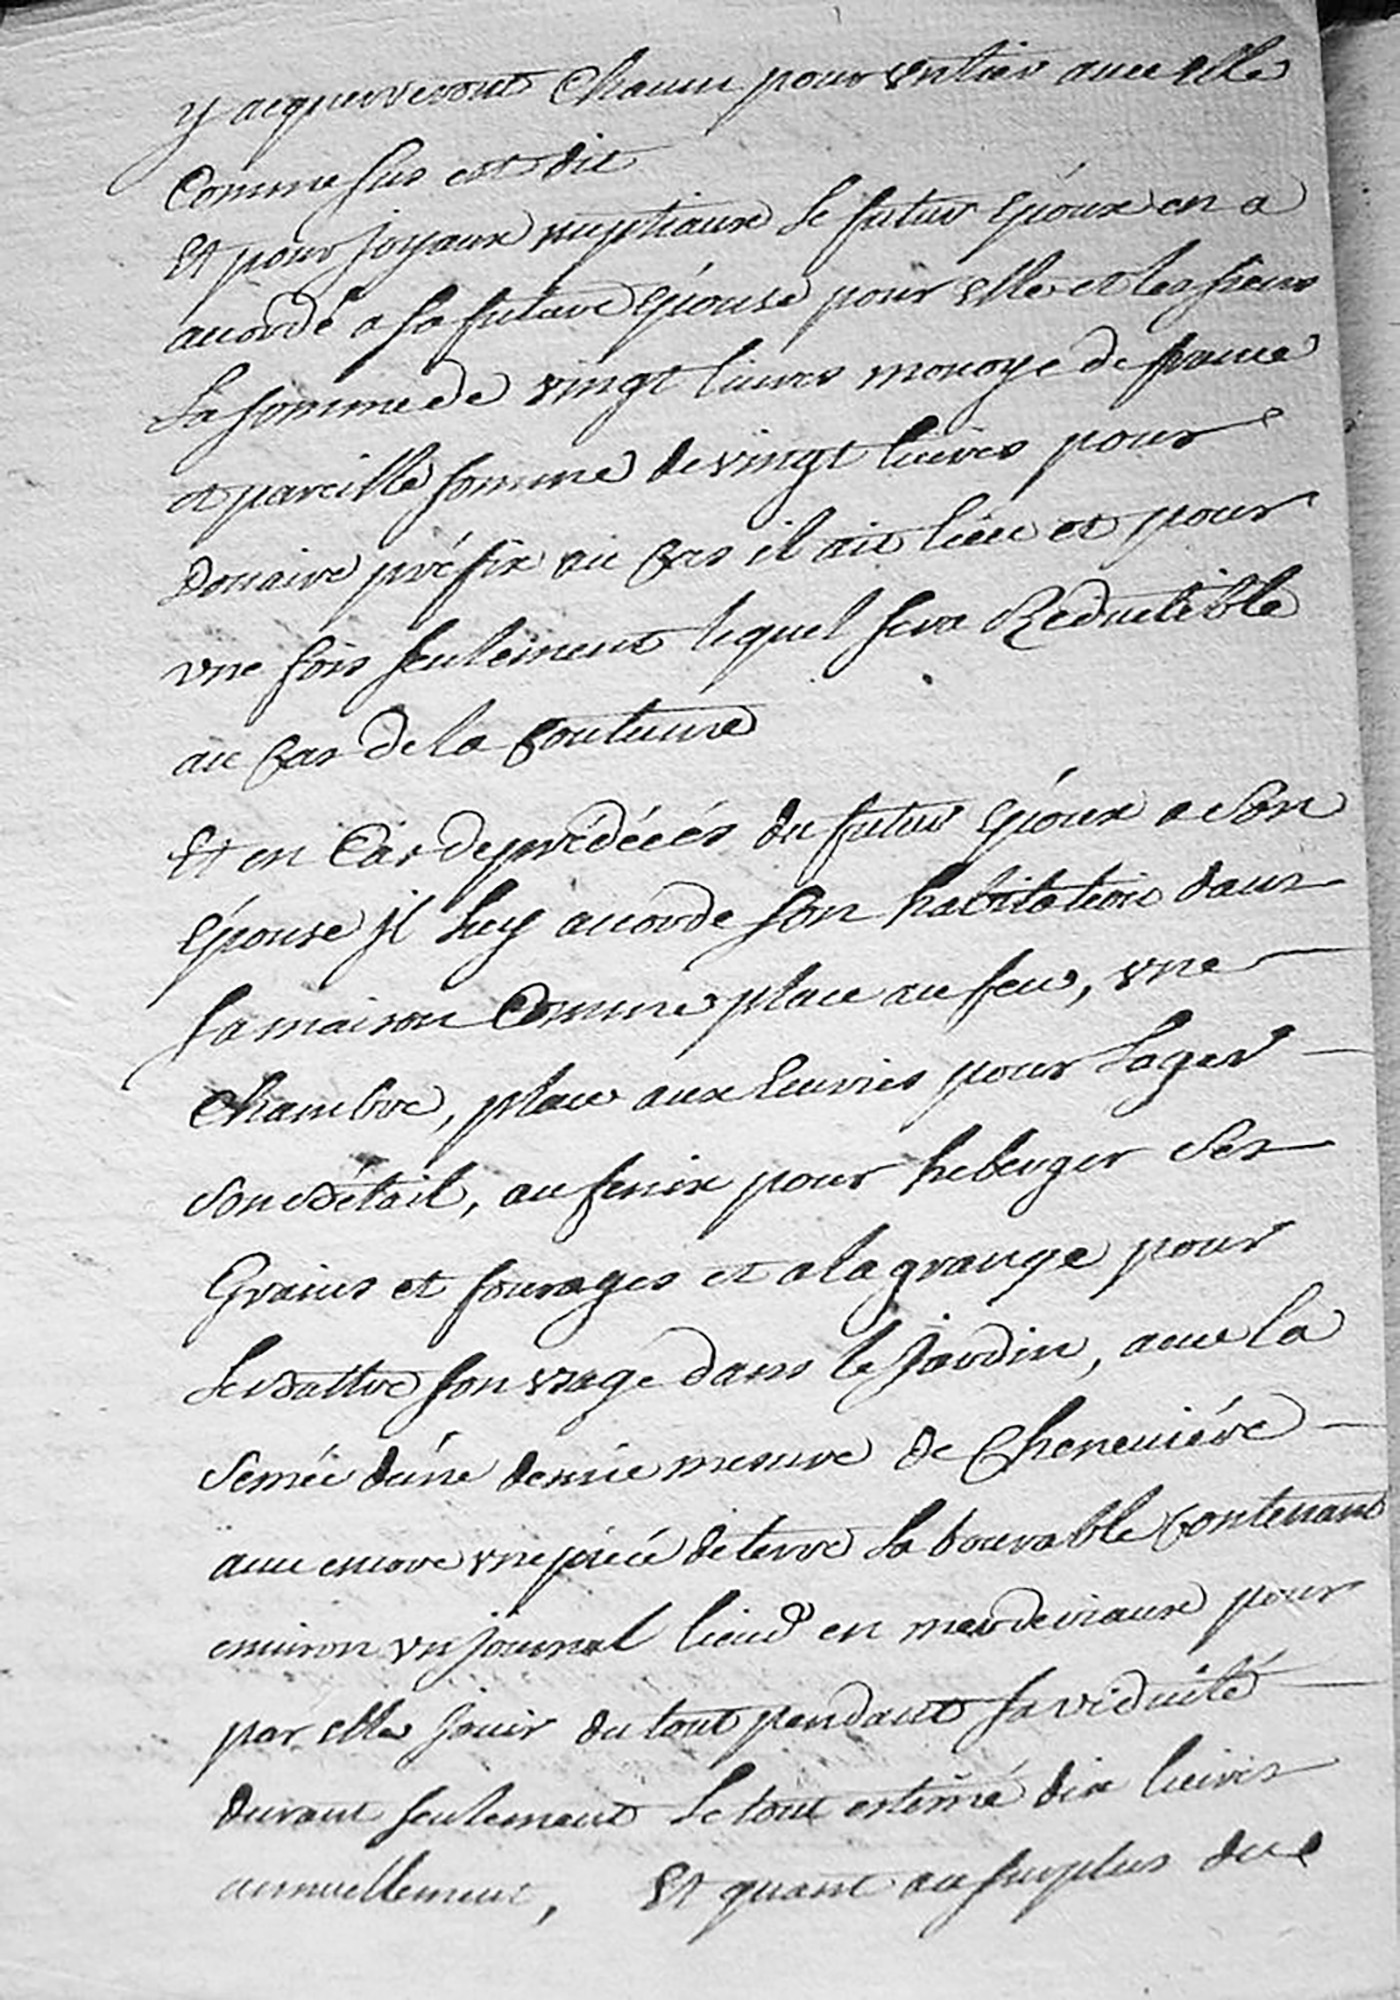 y acquerreront Chacun pour entier avec elle
Comme sus est dit
Et pour joyaux nuptiaux le futur Epoux en a
acordé a sa future Epouse pour elle et les siens
La somme de vingt livres monoye de france
et pareille somme de vingt livres pour
douaire préfix au Cas il ait lieu et pour
vne fois seulement lequel sera Reductible
au Cas de la Coutume
Et en Cas de prédécés du futur Epoux a son
Epouse jl luy acorde son habitation dans
sa maison Comme place au feu, vne
Chambre, place aux Ecuries pour Loger
son Bétail, au fenix pour heberger ses
Grains et fourages et a la grange pour
Les battre son vsage dans le Jardin, avec la
semée d'une demie mesure de Cheneviére
avec encore vne piéce de terre Labourable Contenant
environ vn journal lieud en pour
par elle Jouir du tout pendant sa viduité
durant seulement Le tout estimé dix livres
annuellement, Et quant au surplus des